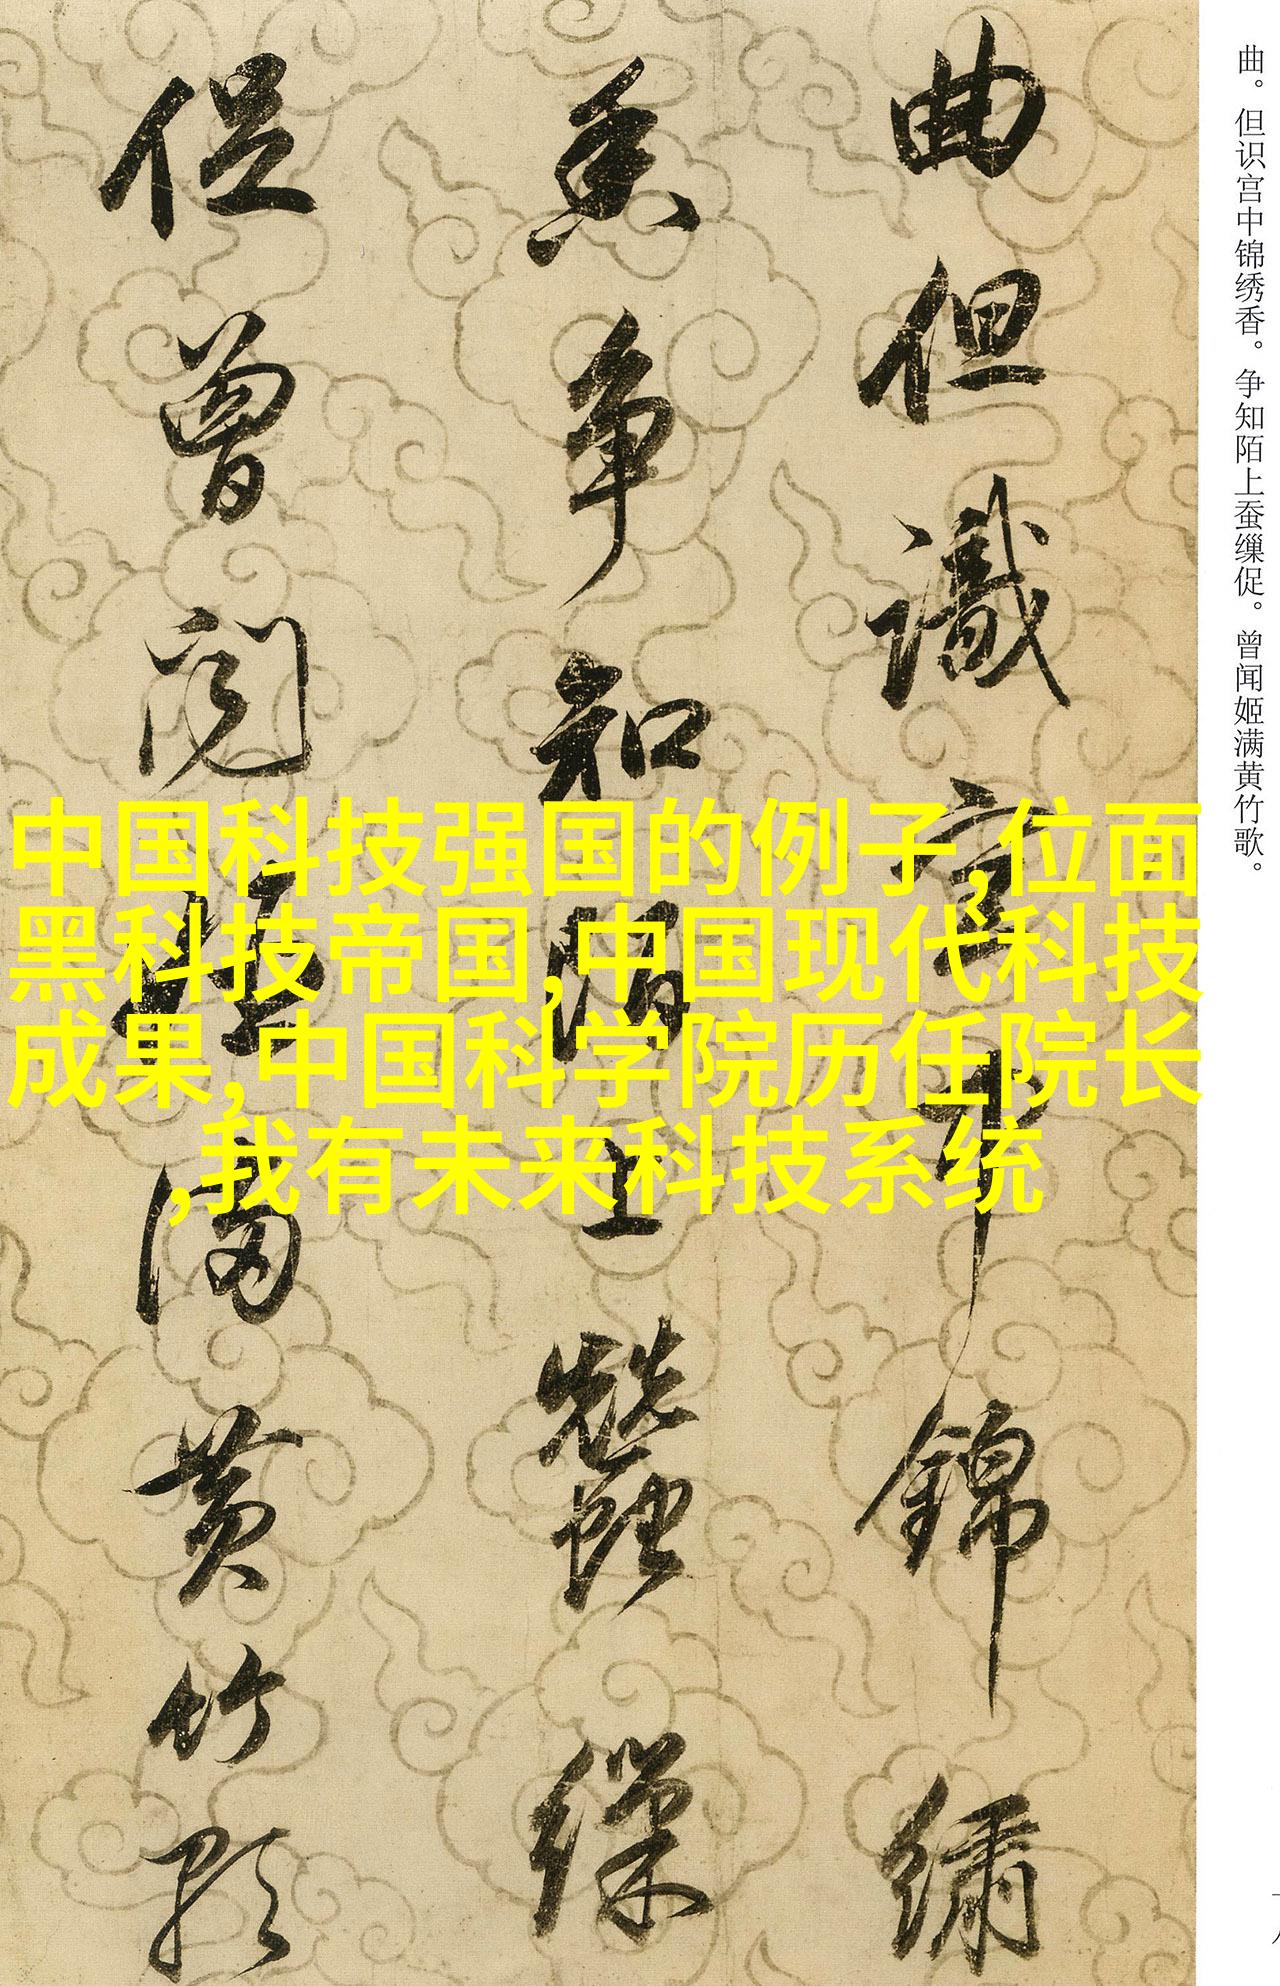 曲。但识宫中锦绣香。争知陌上蚕缫促。曾闻姬满黄竹歌。
曲但識宮中錦繡
香争知陌上蠶繅
促曾闻姬满黄竹歌
中国科技强国的例子,位面
黑科技帝国,中国现代科技
成果,中国科学院历任院长
,我有未来科技系统